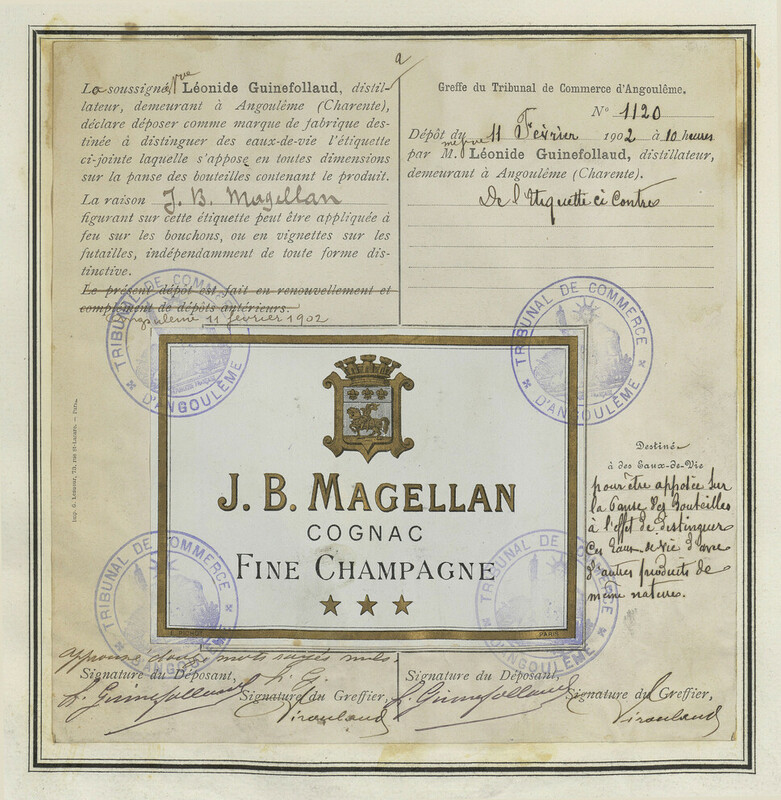 La soussignée Vve Léonide Guinefollaud, distil-
lateur, demeurant à Angoulême (Charente),
déclare déposer comme marque de fabrique des-
tinée à distinguer des eaux-de-vie l'étiquette
ci-jointe laquelle s'appose en toutes dimensions
sur la panse des bouteilles contenant le produit.
La raison J. B. Magellan
figurant sur cette étiquette peut être appliquée à
feu sur les bouchons, ou en vignettes sur les
futailles, indépendamment de toute forme dis-
tinctive.
Le présent dépôt est fait en renouvellement et
complément de dépôts antérieurs.
Angoulême 11 février 1902
Greffe du Tribunal de Commerce d'Angoulême.
N° 1120
Dépôt du 11 Février 1902 à 10 heures
par M. Léonide Guinefollaud, distillateur,
demeurant à Angoulême (Charente).
De l'Etiquette ci Contre
TRIBUNAL DE COMMERCE D'ANGOULÊME
TRIBUNAL DE COMMERCE D'ANGOULÊME
J. B. MAGELLAN
COGNAC
FINE CHAMPAGNE
PARIS
Destinée
à des Eaux-de-Vie
pour être apposée sur
la Panse des Bouteilles
à l'effet de distinguer
ces Eaux-de-vie d'avec
d'autres produits de
même nature.
TRIBUNAL DE COMMERCE D'ANGOULÊME
TRIBUNAL DE COMMERCE D'ANGOULÊME
mots rayés nuls.
L. G.
Signature du Déposant,
Signature du Greffier,
L. Guinefollaud
Signature du Déposant,
Signature du Greffier,
L. Guinefollaud